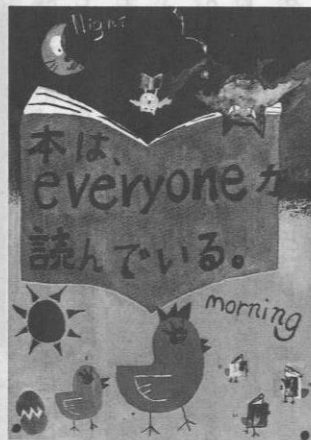 Night
本は、
everyoneが
読んでいる。
morning